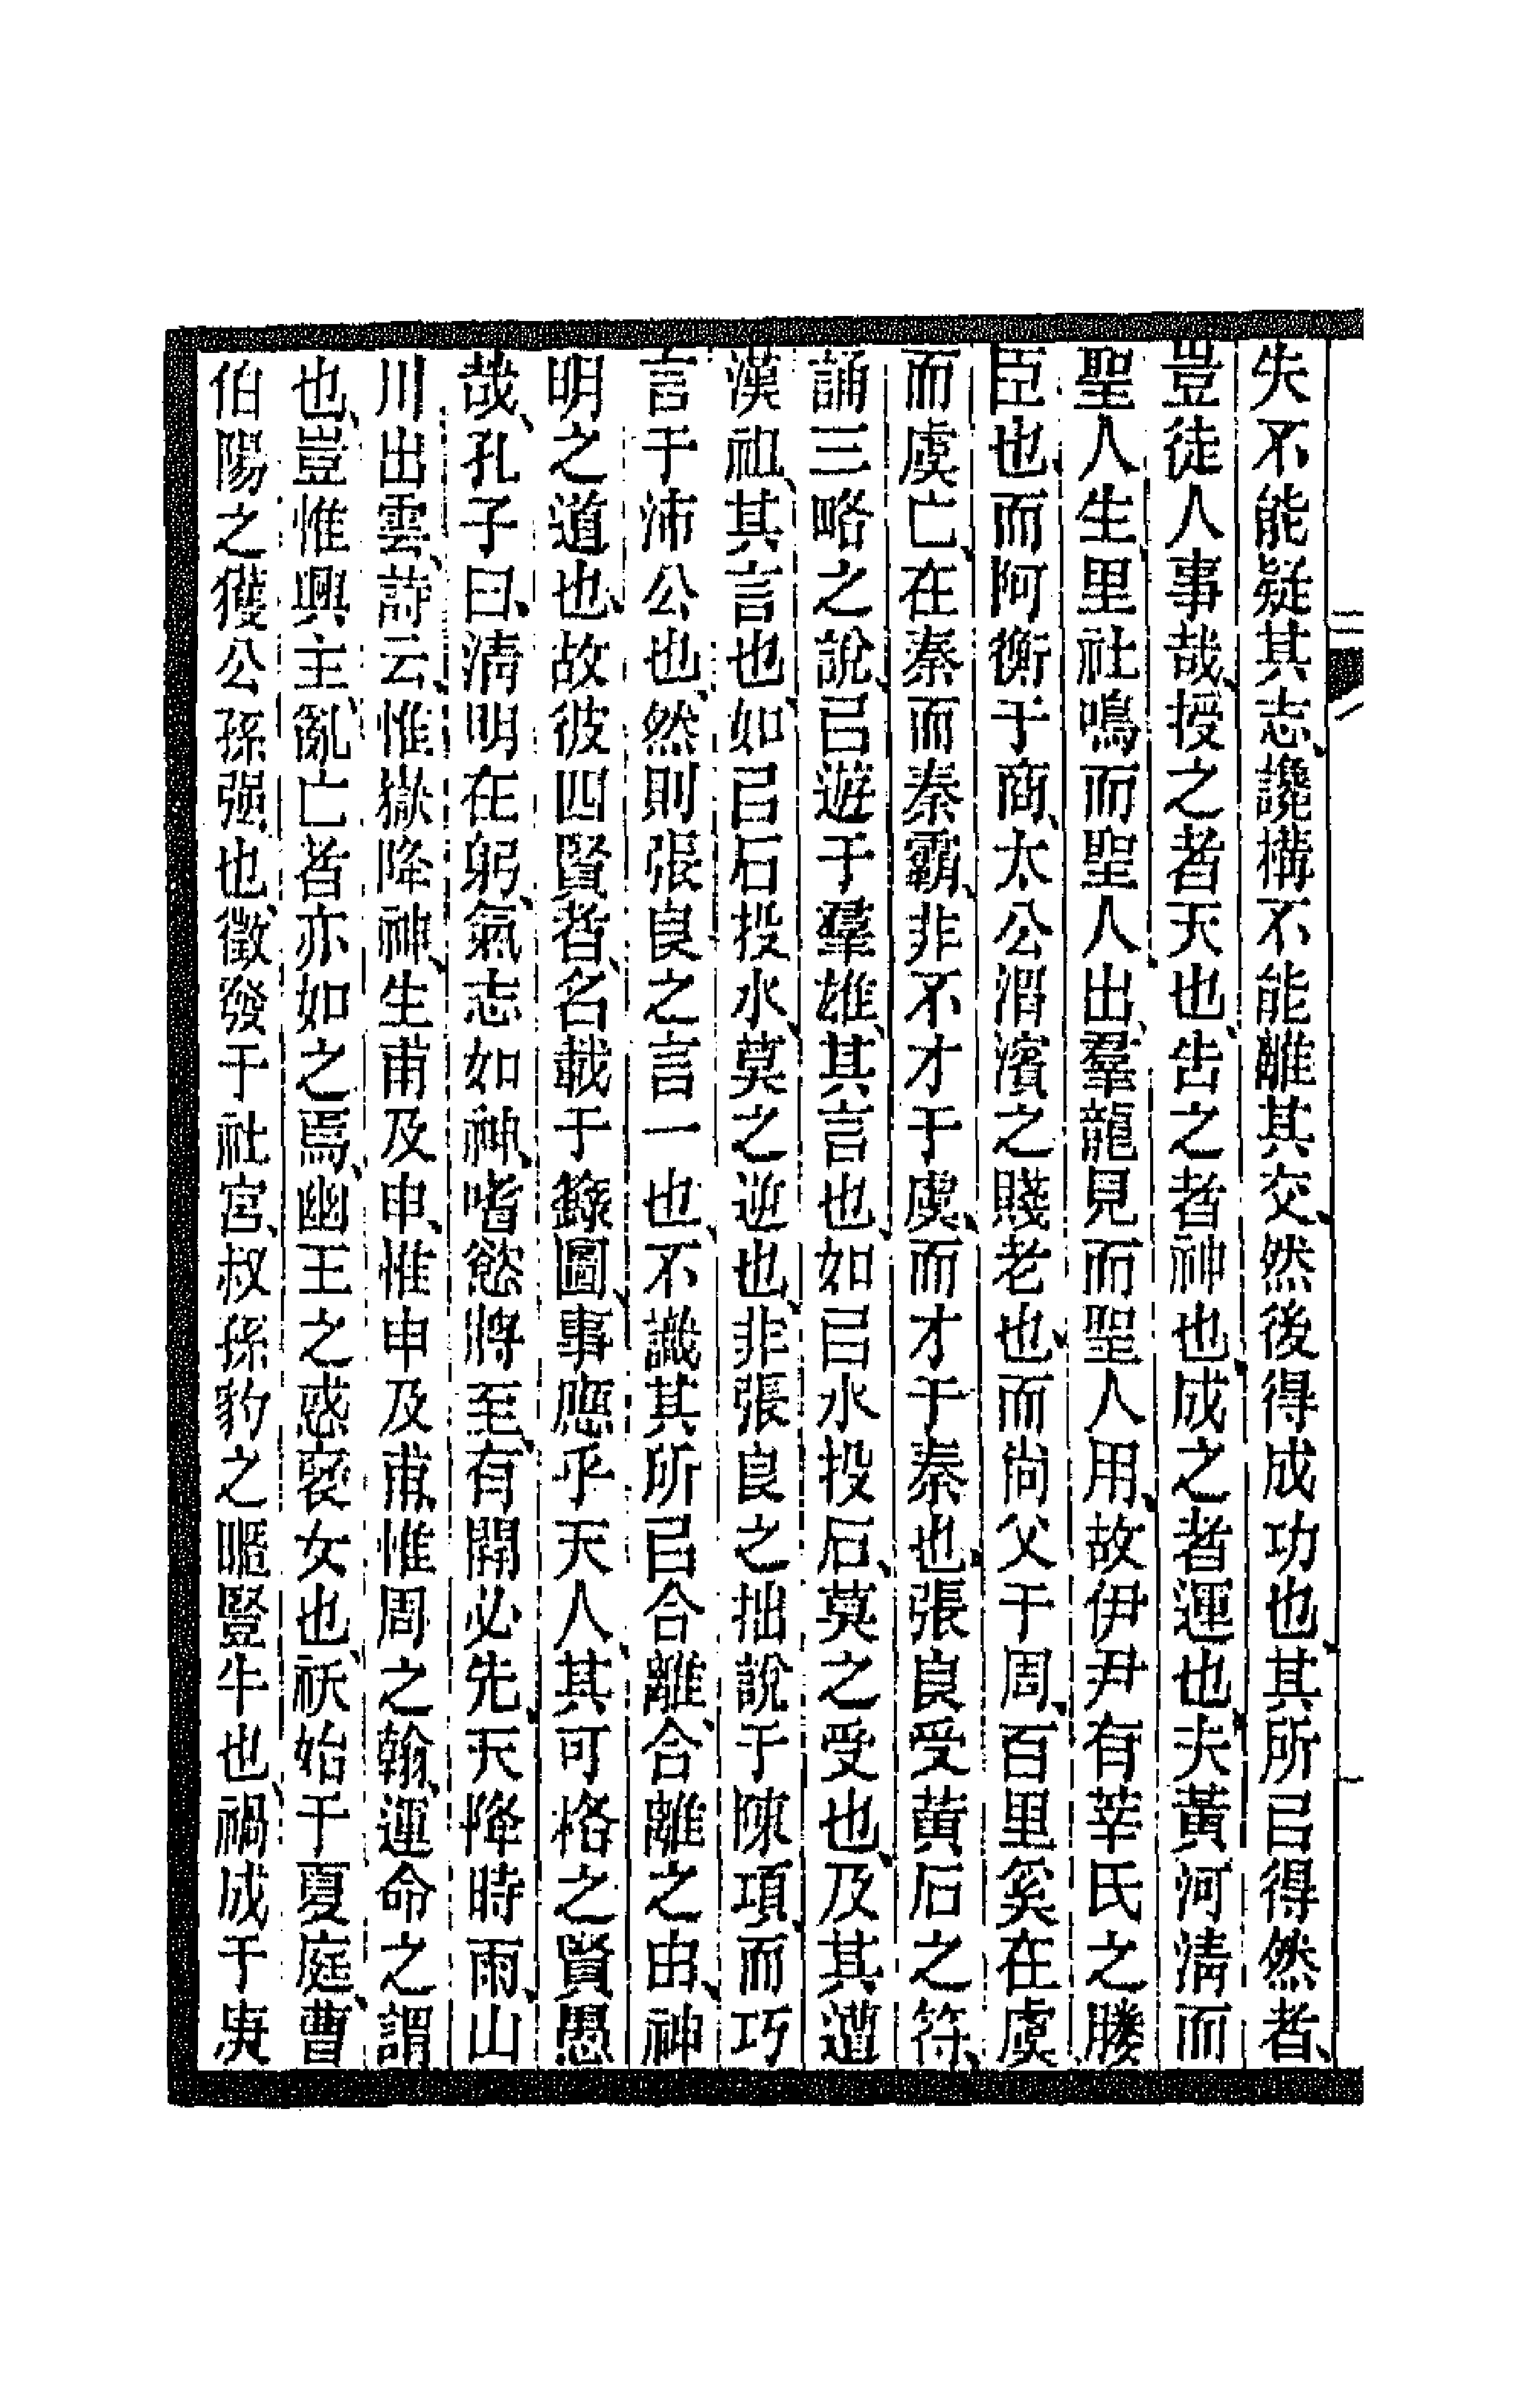 失不能疑其志、讒構不能離其交、然後得成功也、其所㠯得然者、
豈徒人事哉、授之者天也、告之者神也、成之者運也、夫黃河清而
聖人生、里社鳴而聖人出、羣龍見而聖人用、故伊尹有莘氏之媵
臣也、而阿衡于商、太公渭濱之賤老也、而尚父于周、百里奚在虞
而虞亡、在秦而秦霸、非不才于虞、而才于秦也、張良受黃石之符、
誦三略之說、㠯遊于羣雄、其言也、如㠯水投石、莫之受也、及其遭
漢祖、其言也、如㠯石投水、莫之逆也、非張良之拙說于陳項、而巧
言于沛公也、然則張良之言一也、不識其所㠯合離、合離之由、神
明之道也、故彼四賢者、名載于籙圖、事應乎天人、其可格之賢愚
哉、孔子曰、清明在躬、氣志如神、嗜慾將至、有開必先、天降時雨、山
川出雲、詩云、惟嶽降神、生甫及申、惟申及甫、惟周之翰、運命之謂
也、豈惟興主、亂亡者亦如之焉、幽王之惑褒女也、祅始于夏庭、曹
伯陽之獲公孫强也、徵發于社宮、叔孫豹之暱豎牛也、禍成于庚